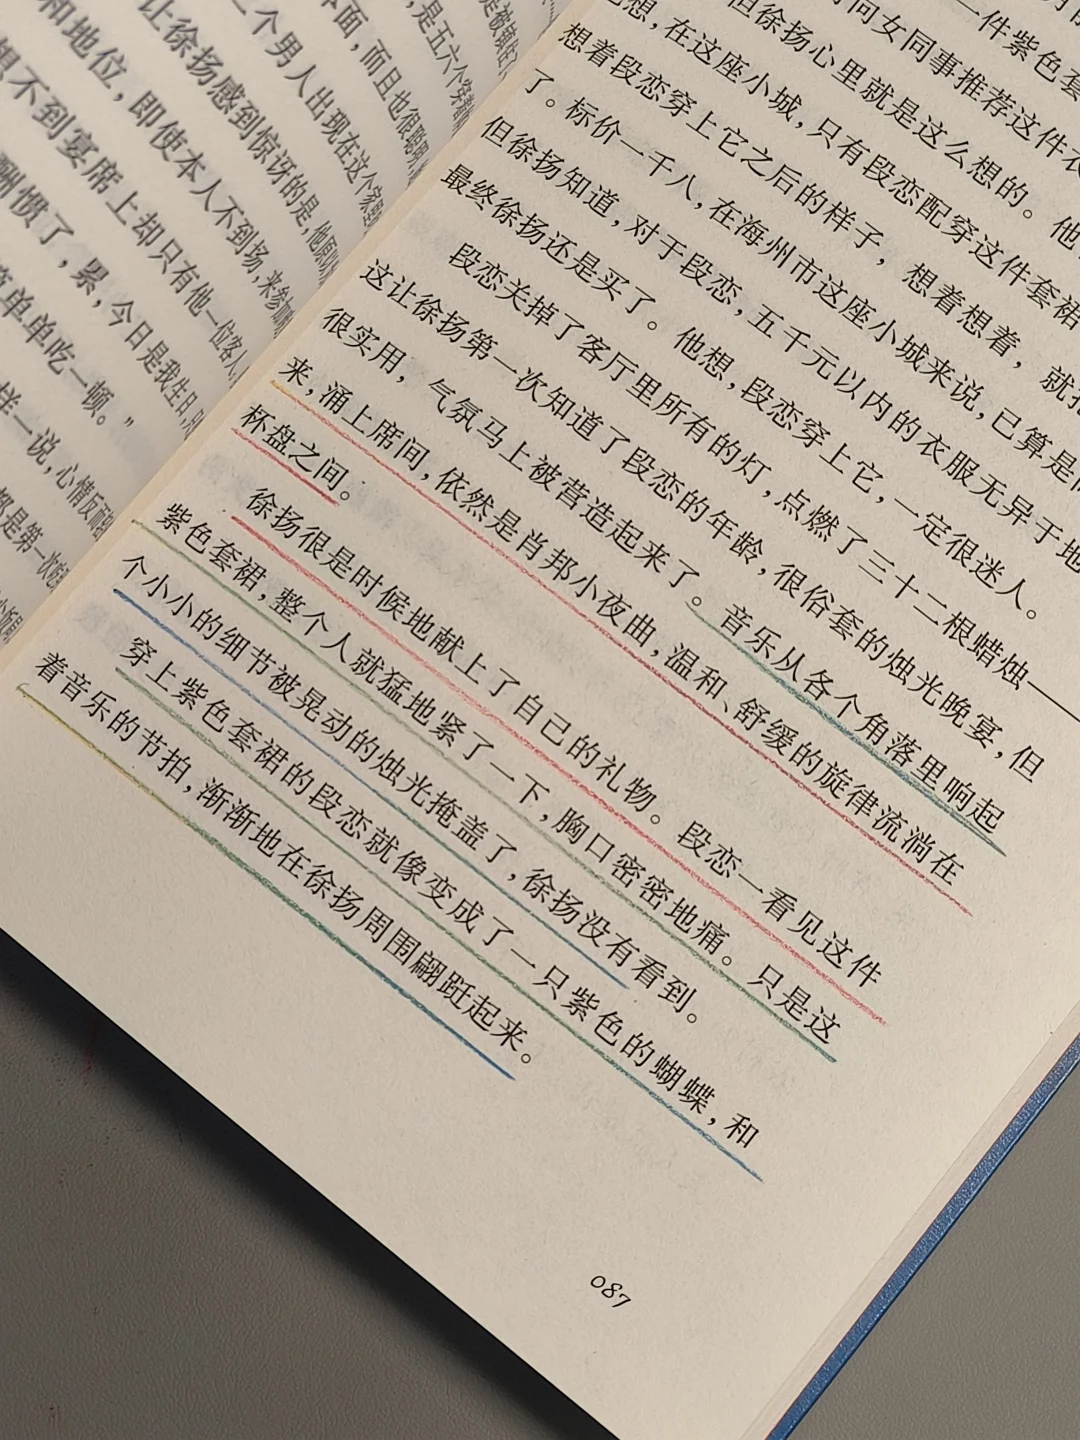 和地位，即使本人不到场，来参加
想不到宴席上却只有他一位客人
酬惯了，累，今日是我生日，
简单单吃一顿。”
样一说，心情反而
都是第一次
让徐扬感到惊讶的是，他原以
三个男人出现在这个家
体面，而且也很聪明
是五六个穿着
一件紫色套
时问女同事推荐这件衣
但徐扬心里就是这么想的。他
想，在这座小城，只有段恋配穿这件套裙
想着段恋穿上它之后的样子，想着想着，就
了。标价一千八，在海州市这座小城来说，已算是
但徐扬知道，对于段恋，五千元以内的衣服无异于地
最终徐扬还是买了。他想，段恋穿上它，一定很迷人。
段恋关掉了客厅里所有的灯，点燃了三十二根蜡烛——
这让徐扬第一次知道了段恋的年龄，很俗套的烛光晚宴，但
很实用，气氛马上被营造起来了。音乐从各个角落里响起
来，涌上席间，依然是肖邦小夜曲，温和、舒缓的旋律流淌在
杯盘之间。
徐扬很是时候地献上了自己的礼物。段恋一看见这件
紫色套裙，整个人就猛地紧了一下，胸口密密地痛。只是这
个小小的细节被晃动的烛光掩盖了，徐扬没有看到。
穿上紫色套裙的段恋就像变成了一只紫色的蝴蝶，和
着音乐的节拍，渐渐地在徐扬周围翩跹起来。
087